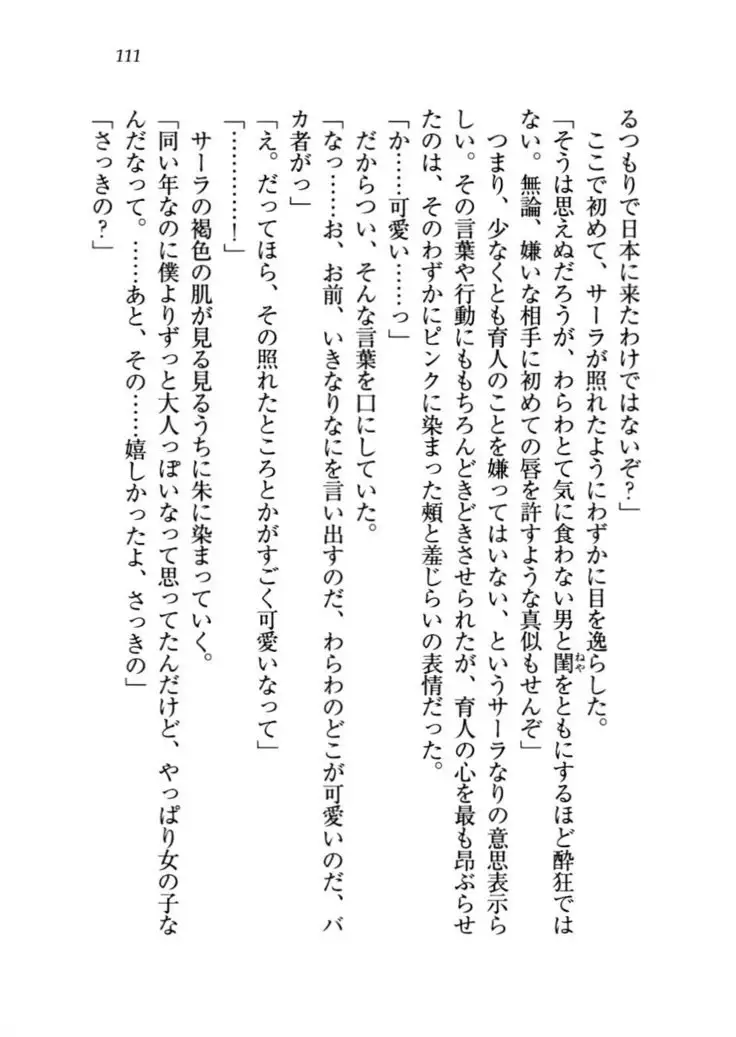 111
るつもりで日本に来たわけではないぞ？」
ここで初めて、サーラが照れたようにわずかに目を逸らした。
「そうは思えぬだろうが、わらわとて気に食わない男と閨をともにするほど酔狂では
ねや
ない。無論、嫌いな相手に初めての唇を許すような真似もせんぞ」
つまり、少なくとも育人のことを嫌ってはいない、というサーラなりの意思表示ら
しい。その言葉や行動にももちろんどきどきさせられたが、育人の心を最も昂ぶらせ
たのは、そのわずかにピンクに染まった頬と羞じらいの表情だった。
「か……可愛い……っ」
だからつい、そんな言葉を口にしていた。
「なっ……お、お前、いきなりなにを言い出すのだ、わらわのどこが可愛いのだ、バ
カ者がっ」
「え。だってほら、その照れたところとかがすごく可愛いなって」
「…………！」
サーラの褐色の肌が見る見るうちに朱に染まっていく。
「同い年なのに僕よりずっと大人っぽいなって思ってたんだけど、やっぱり女の子な
んだなって。……あと、その……嬉しかったよ、さっきの」
「さっきの？」